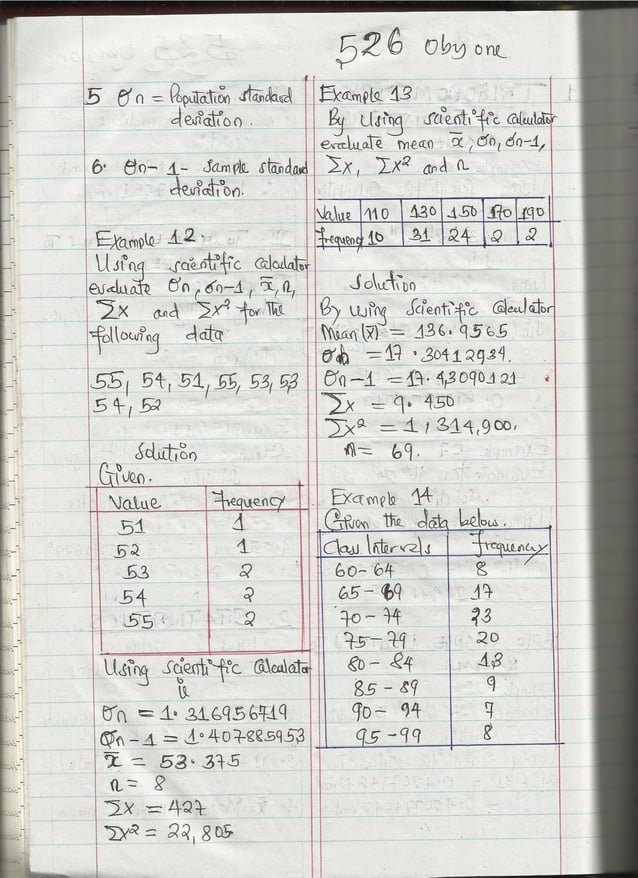 526 Obyone
5 σn = Population standard
deviation.
6. σn-1- Sample standard
deviation.
Example 12.
Using scientific calculator
evaluate σn, σn-1, x̄, n,
∑x and ∑x² for the
following data
55, 54, 51, 55, 53, 53
54, 52
Solution
Given.
Value Frequency
51 1
52 1
53 2
54 2
55 2
Using scientific Calculator
σn = 1.316956719
σn-1 = 1.407885953
x̄ = 53.375
n = 8
∑x = 427
∑x² = 22,805
Example 13
By Using scientific calculator
evaluate mean x̄, σn, σn-1,
∑x, ∑x² and n
Value 110 130 150 170 190
Frequency 10 31 24 2 2
Solution
By using Scientific Calculator
Mean (x̄) = 136.9565
σn = 17.30412934.
σn-1 = 17.43090121
∑x = 9.450
∑x² = 1,314,900.
n = 69.
Example 14
Given the data below.
Class Intervals Frequency
60-64 8
65-69 17
70-74 23
75-79 20
80-84 13
85-89 9
90-94 7
95-99 8